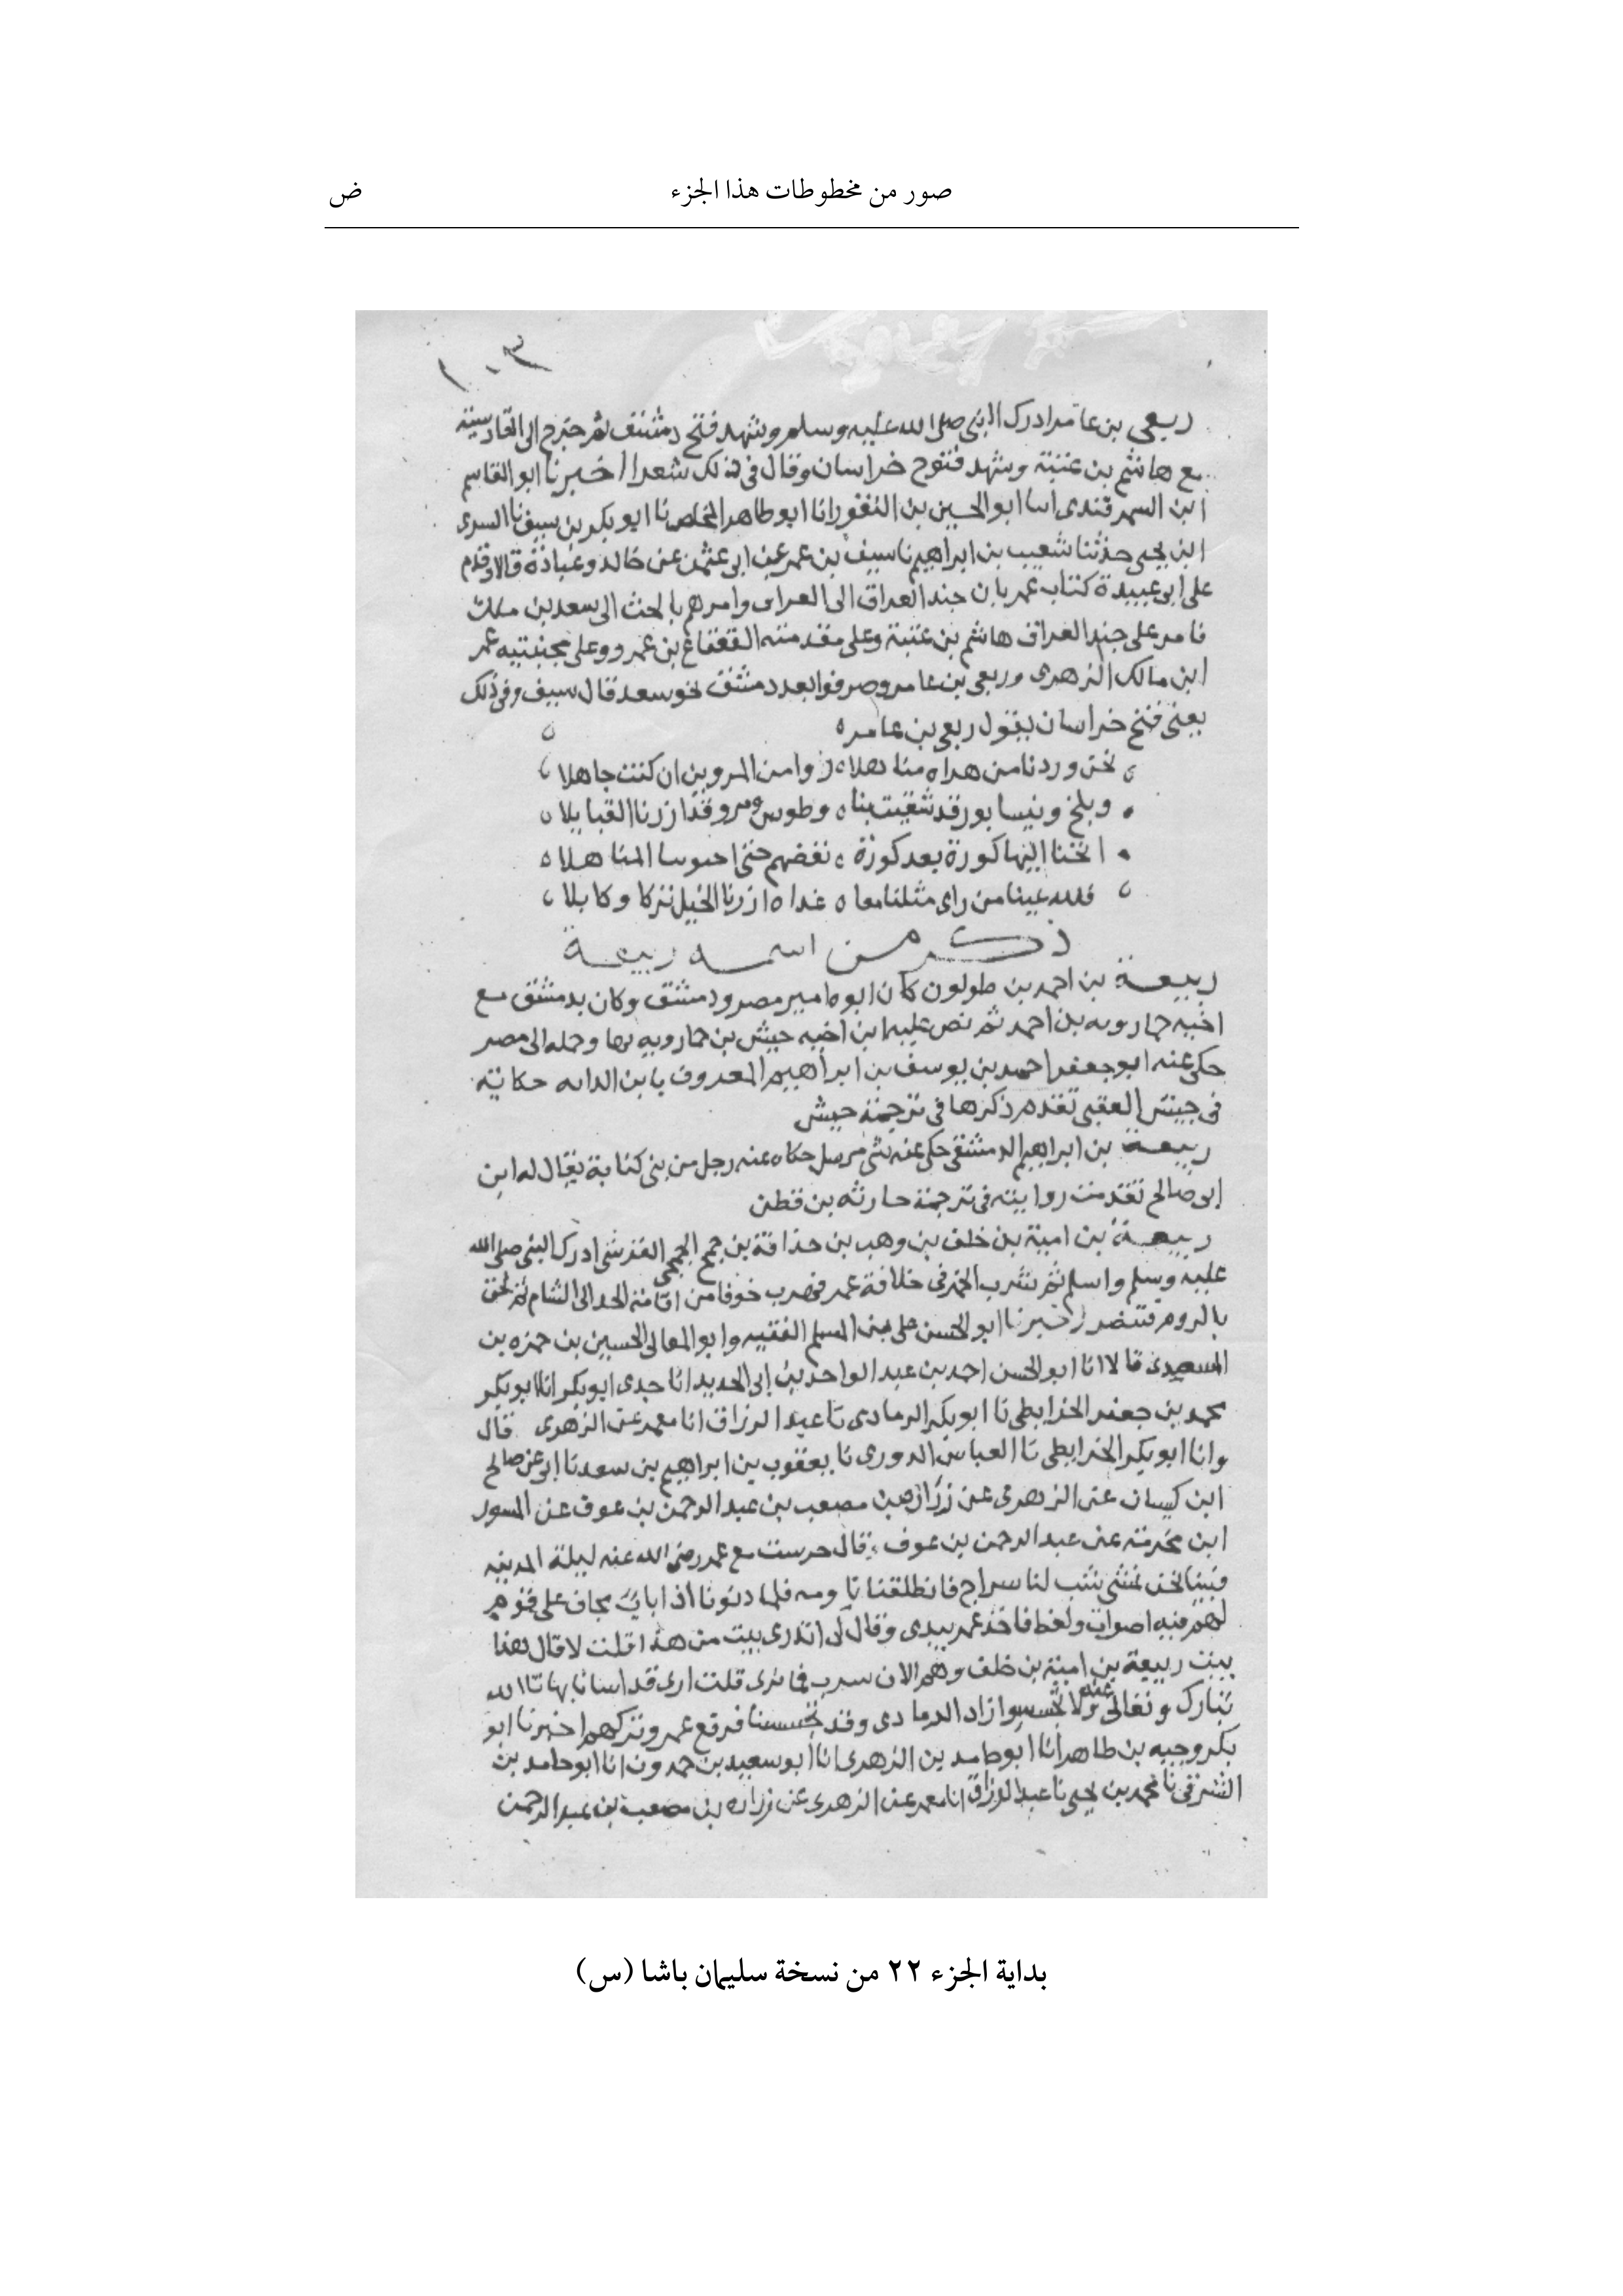 صور من مخطوطات هذا الجزء
ض
١٠٣
ربعي بن عامر ادرك النبي صلى الله عليه وسلم وشهد فتح دمشق ثم خرج الى القادسية
مع هاشم بن عتبة وشهد فتوح خراسان وقال في ذلك شعرا اخبرنا ابو القاسم
ابن السمرقندي انا ابو الحسين بن النقور انا ابو طاهر المخلص نا ابو بكر بن سيف نا السري
ابن يحيى حدثنا شعيب بن ابراهيم نا سيف بن عمر عن ابي عثمن عن خالد وعبادة قالا وقدم
على ابي عبيدة كتاب عمر بان جند العراق الى العراق وامرهم بالحث الى سعد بن ملك
فامر على جند العراق هاشم بن عتبة وعلى مقدمته القعقاع بن عمرو وعلى مجنبتيه عمر
ابن مالك الزهري وربعي بن عامر وصرفوا بعد دمشق نحو سعد قال سيف وفي ذلك
يعني فتح خراسان يقول ربعي بن عامر ه
نحن وردنا من هراه مناهلا ه روا من المروين ان كنت جاهلا
وبلخ ونيسابور قد شقيت بنا ه وطوس ومرو قد ازرنا القبايلا ه
انخنا اليها كورة بعد كورة ه نفضهم حتى احتوينا المناهلا ه
فلله عينا من راى مثلنا معا ه غداه ازرنا الخيل تركا وكابلا
ذكر من اسمه ربيعة
ربيعة بن احمد بن طولون كان ابوه امير مصر ودمشق وكان بدمشق مع
اخيه خمارويه بن احمد ثم نص عليه ابن اخيه جيش بن خمارويه بها وحمله الى مصر
حكى عنه ابو جعفر احمد بن يوسف بن ابراهيم المعروف بابن الدايه حكاية
في جيش العقبي تقدم ذكرها في ترجمة جيش
ربيعة بن ابراهيم الدمشقي حكى عنه شي مرسل حكاه عنه رجل من بني كنانة يقال له ابن
ابي صالح تقدمت روايته في ترجمة حارثه بن قطن
ربيعة بن امية بن خلف بن وهب بن حذافة بن جمح الجمحي القرشي ادرك النبي صلى الله
عليه وسلم واسلم ثم شرب الخمر في خلافة عمر فهرب خوفا من اقامة الحد الى الشام ثم لحق
بالروم فتنصر اخبرنا ابو الحسن علي بن المسلم الفقيه وابو المعالي الحسين بن حمزه بن
قالا انا ابو الحسن احمد بن عبد الواحد بن ابي الحديد انا جدي ابو بكر انا ابو بكر
محمد بن جعفر الخرايطي نا ابو بكر الرمادي نا عبد الرزاق انا معمر عن الزهري قال
وانا ابو بكر الخرايطي نا العباس الدوري نا يعقوب بن ابراهيم بن سعد نا ابي عن صالح
ابن كيسان عن الزهري عن زراره بن مصعب بن عبد الرحمن بن عوف عن المسور
ابن مخرمة عن عبد الرحمن بن عوف قال حرست مع عمر رضي الله عنه ليلة المدينه
فبينا نحن نمشي شب لنا سراج فانطلقنا نا ومه فلما دنونا اذا باب مجاف على قوم
لهم فيه اصوات ولغط فاخذ عمر بيدي وقال لي اتدري بيت من هذا قلت لا قال هذا
بيت ربيعة بن امية بن خلف وهم الان سرب فما ترى قلت ارى قد اتينا ما نهانا الله
تبارك وتعالى عنه ولا تجسسوا زاد الرمادي وقد تجسسنا فرفع عمر وتركهم اخبرنا ابو
بكر وجيه بن طاهر انا ابو حامد بن الزهري انا ابو سعيد بن حمدون انا ابو حامد بن
الشرقي نا محمد بن يحيى نا عبد الرزاق انا معمر عن الزهري عن زراره بن مصعب بن عبد الرحمن
بداية الجزء ٢٢ من نسخة سليمان باشا (س)